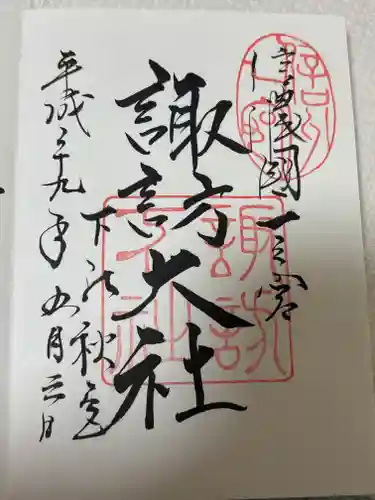 信濃國一之宮
諏訪大社
下社秋宮
平成二十九年五月三日